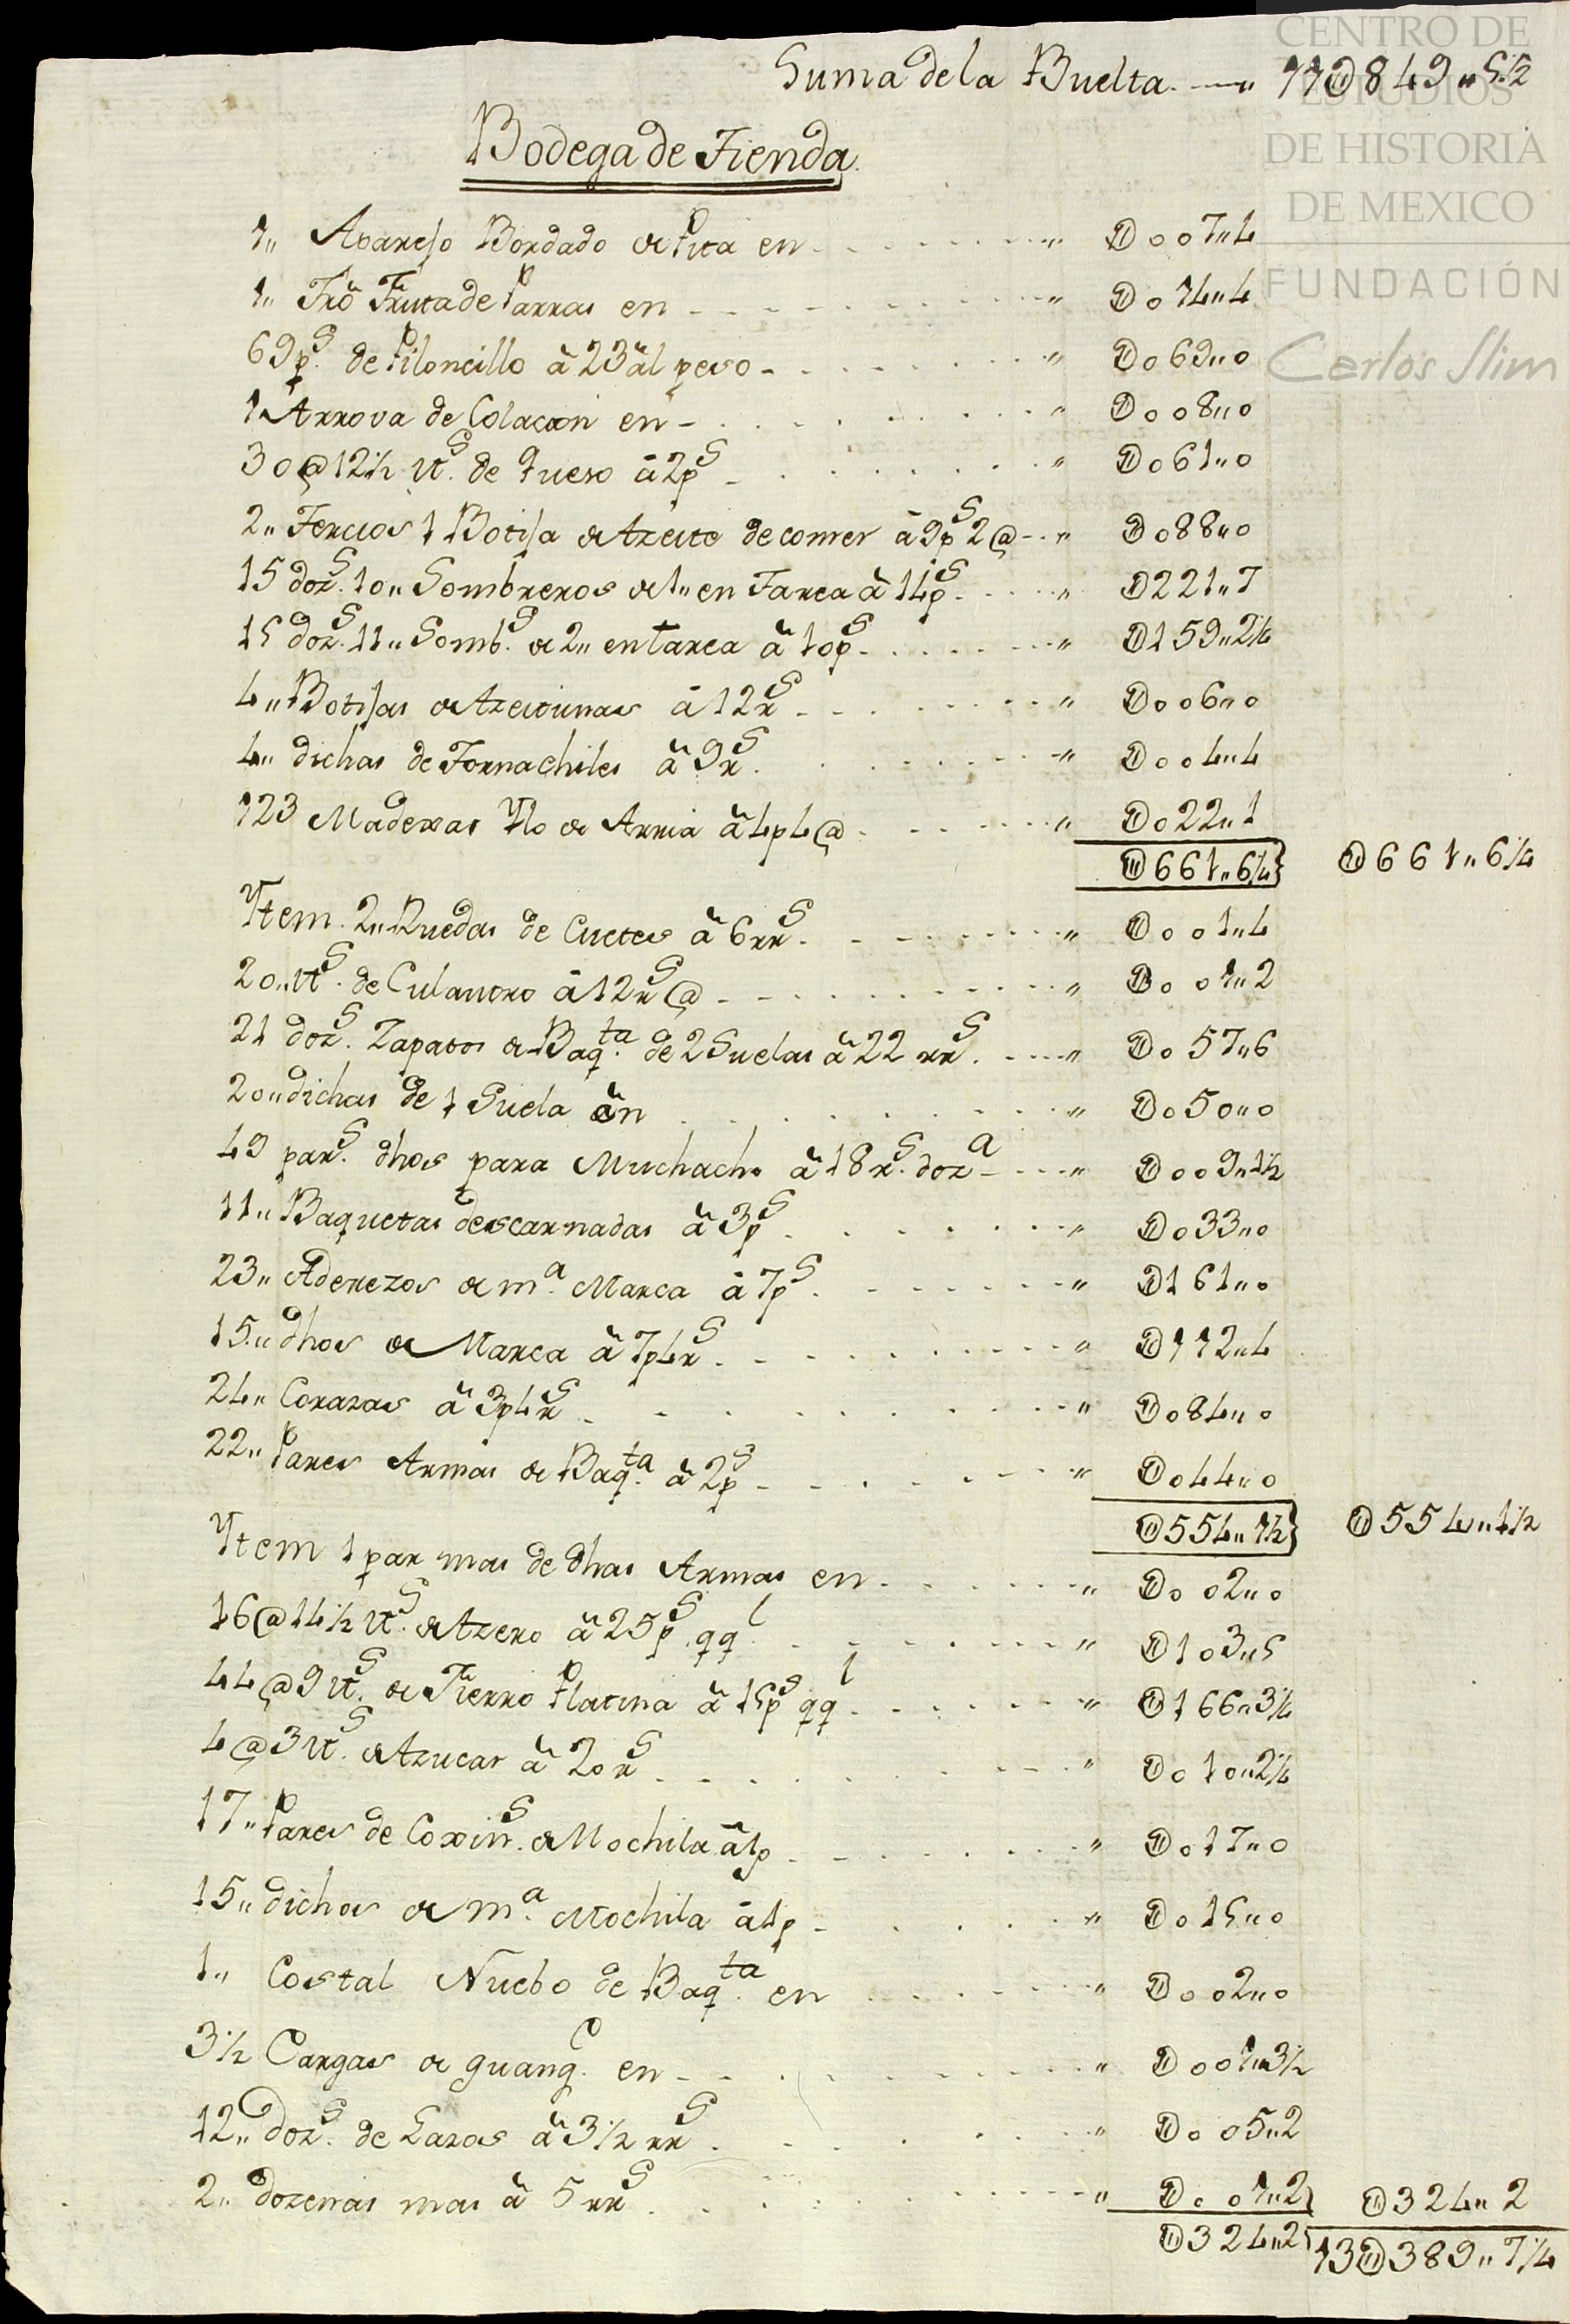 Suma de la Buelta. — „ 11@849„5½
Bodega de Tienda.
1„ Aparejo Bordado de Pita en - - - „ @007„4
1„ Tro Fruta de Parras en - - - „ @014„4
69 ps. de Piloncillo à 23 al peso - - - „ @069„0
1 Arrova de Colacion en - - - „ @008„0
30@12½ lts. de Queso à 2ps - - - „ @061„0
2„ Tercios 1 Botija de Azeite de comer à 9ps 2@ - - „ @088„0
15 dozs. 10„ Sombreros de 1„ en Tarea à 14ps. - - - „ @221„7
15 dozs. 11„ Sombs. de 2„ en tarea à 10ps. - - - „ @159„2¼
4„ Botijas de Azeitunas à 12rs - - - „ @006„0
4„ dichas de Tornachiles à 9rs. - - - „ @004„4
123 Madexas Ylo de Arria à 4p4@ - - - „ @022„1
@661„6¼} @661„6¼
Ytem. 2„ Ruedas de Cuetes à 6rrs. - - - „ @001„4
20„lts. de Culantro à 12rs @ - - - „ @001„2
21 dozs. Zapatos de Baqta. de 2 Suelas à 22 rrs. - - - „ @057„6
20„ dichas de 1 Suela en - - - „ @050„0
49 pars. dhos para Muchacho à 18rs. doza - - - „ @009„1½
11„ Baquetas descarnadas à 3ps. - - - „ @033„0
23„ Aderezos de ma. Marca à 7ps. - - - „ @161„0
15„ dhos de Marca à 7p4rs. - - - „ @112„4
24„ Corazas à 3p4rs - - - „ @084„0
22„ Pares Armas de Baqta. à 2ps - - - „ @044„0
@554„1½} @554„1½
Ytem 1 par mas de dhas Armas en - - - „ @002„0
16@14½ lts. de Azero à 25ps. qql - - - „ @103„5
44@9 lts. de Fierro Platina à 15ps qql - - - „ @166„3¼
4@3 lts. de Azucar à 20rs - - - „ @010„2¼
17„ Pares de Coxins. de Mochila à 1p - - - „ @017„0
15„ dichos de ma. Mochila à 1p - - - „ @015„0
1„ Costal Nuebo de Baqta. en - - - „ @002„0
3½ Cargas de guange. en - - - „ @001„3½
12„ dozs. de Lazos à 3½ rrs. - - - „ @005„2
2„ dozenas mas à 5 rrs. - - - „ @001„2} @324„2
@324„2} 13@389„7¼
CENTRO DE
ESTUDIOS
DE HISTORIA
DE MEXICO
FUNDACIÓN
Carlos Slim